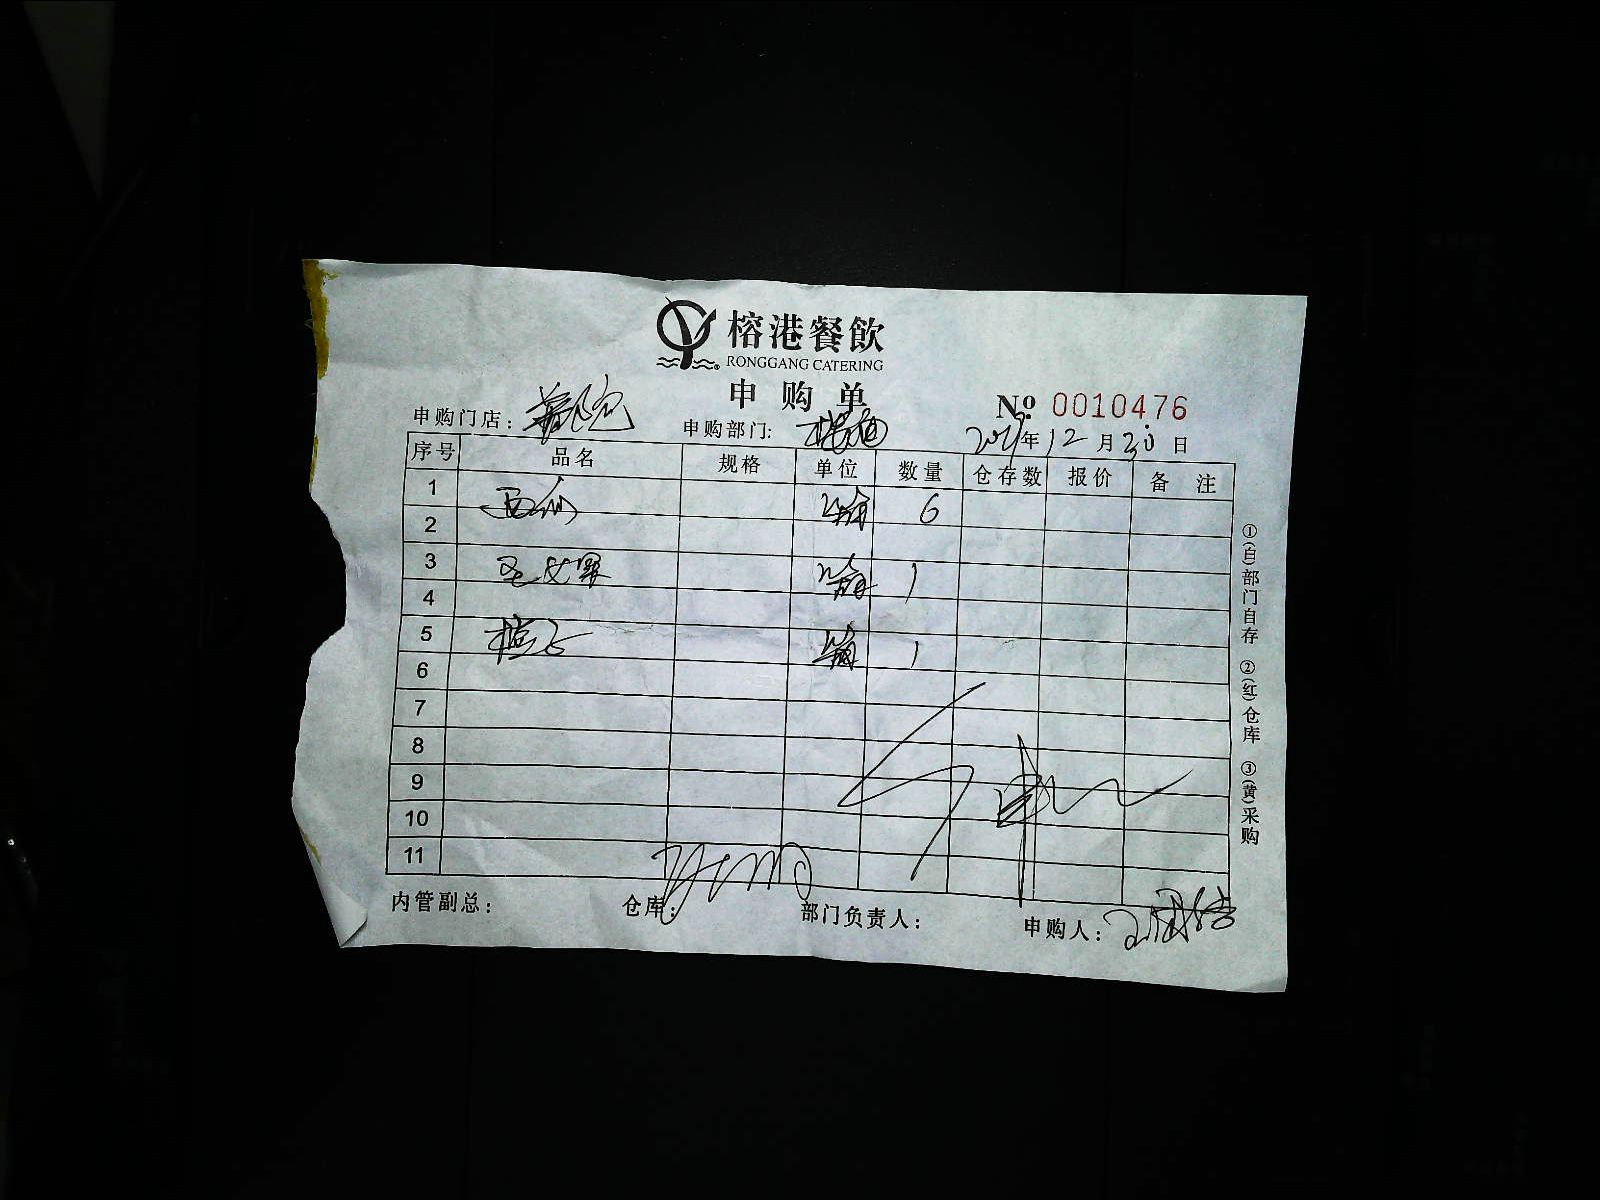 榕港餐飲
RONGGANG CATERING
申购单
№ 0010476
申购门店：
申购部门：
年12月30日
序号 品名 规格 单位 数量 仓存数 报价 备注
1 6
2
3 圣女果 1
4
5 橙子 1
6
7
8
9
10
11
内管副总： 仓库： 部门负责人： 申购人：
①(白)部门自存 ②(红)仓库 ③(黄)采购